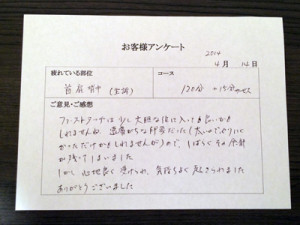 お客様アンケート
2014
4月 14日
疲れている部位
コース
首 肩 背中 (全調)
120分
ご意見・ご感想
ファーストタッチは少し大胆な位に入っても良いかも
しれませんね。遠慮がちな印象だった(たいのでそりにく
かっただけかもしれませんが)ので、しばらくその印象
が残ってしまいました
しかし心地良く受けられ、気持ちよく起きられました
ありがとうございました